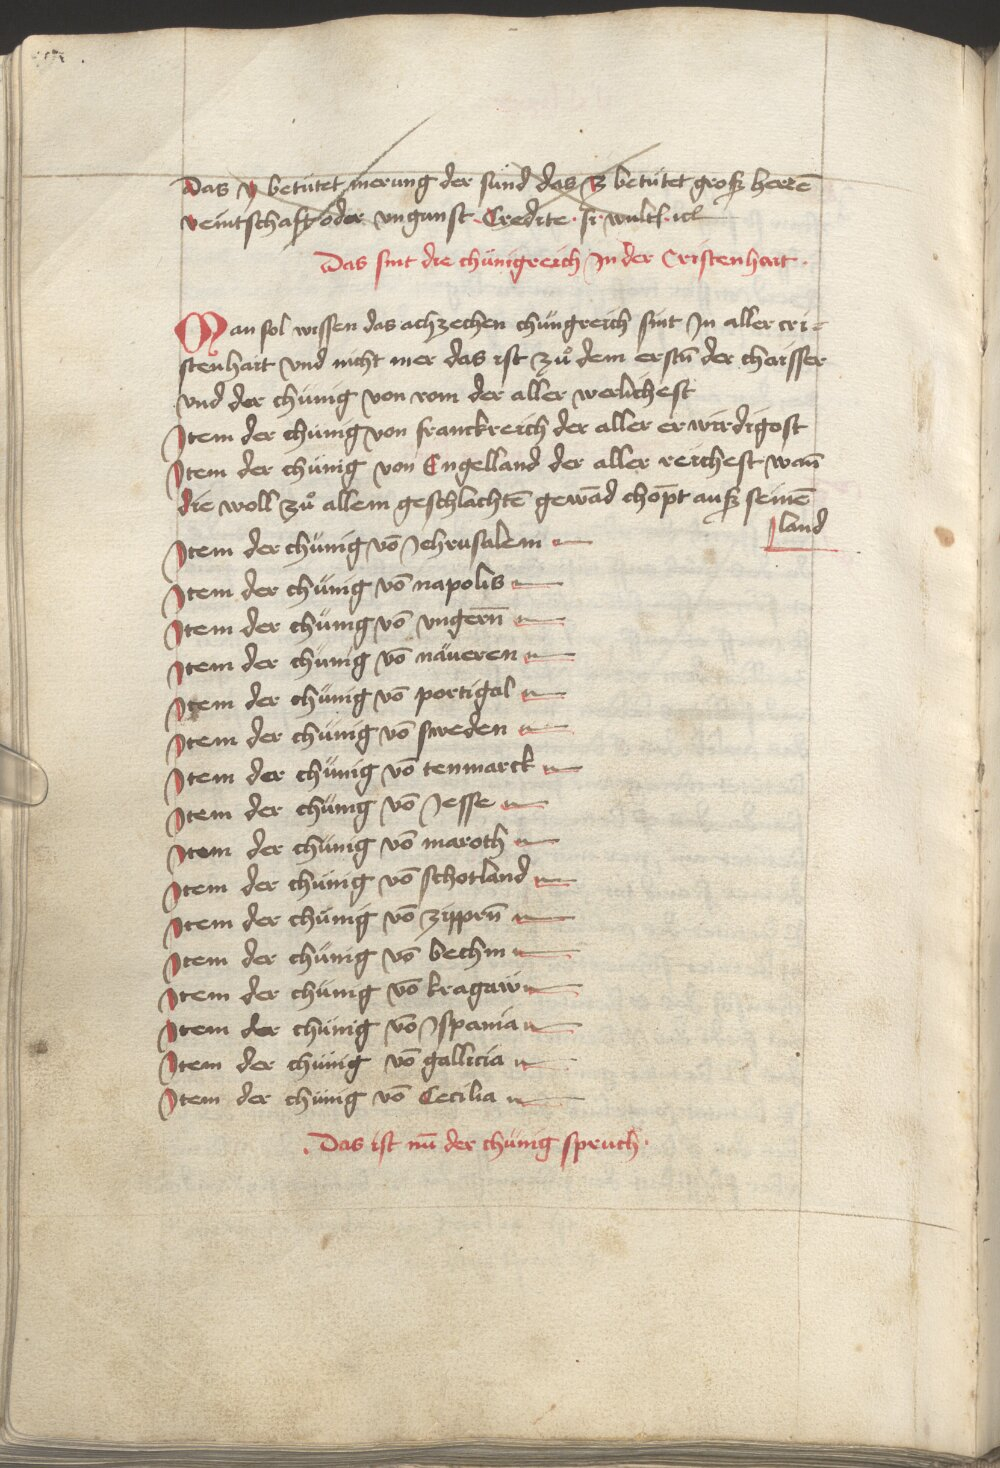 Das y betütet merung der sünd das z betütet groß herrē
veintschaft oder vngunst Credite · si · wultl · ul
Das sint die chünigreich Jn der Cristenhait ·
Man sol wissen das achzechen chüngreich sint Jn aller cri-
stenhait vnd nicht mer das ist zů dem erstñ der chaisser
vnd der chünig von rom der aller werlichest
Jtem der chünig von franckreich der aller erwirdigost
Jtem der chünig von Engelland der aller reichest wañ
die woll zů allem geschlachtē gewād chop̄t auß seinē
land
Jtem der chünig võ Jehrusalem
Jtem der chünig võ napolis
Jtem der chünig võ vngerñ
Jtem der chünig võ näueren
Jtem der chünig võ portigal
Jtem der chünig võ sweden
Jtem der chünig võ tenmarck
Jtem der chünig võ Jesse
Jtem der chünig võ maroth
Jtem der chünig võ schotland
Jtem der chünig võ zipprñ
Jtem der chünig võ bechm
Jtem der chünig võ kragaw
Jtem der chünig võ Jspania
Jtem der chünig võ gallicia
Jtem der chünig võ Cecilia
· Das ist nū der chünig spruch ·